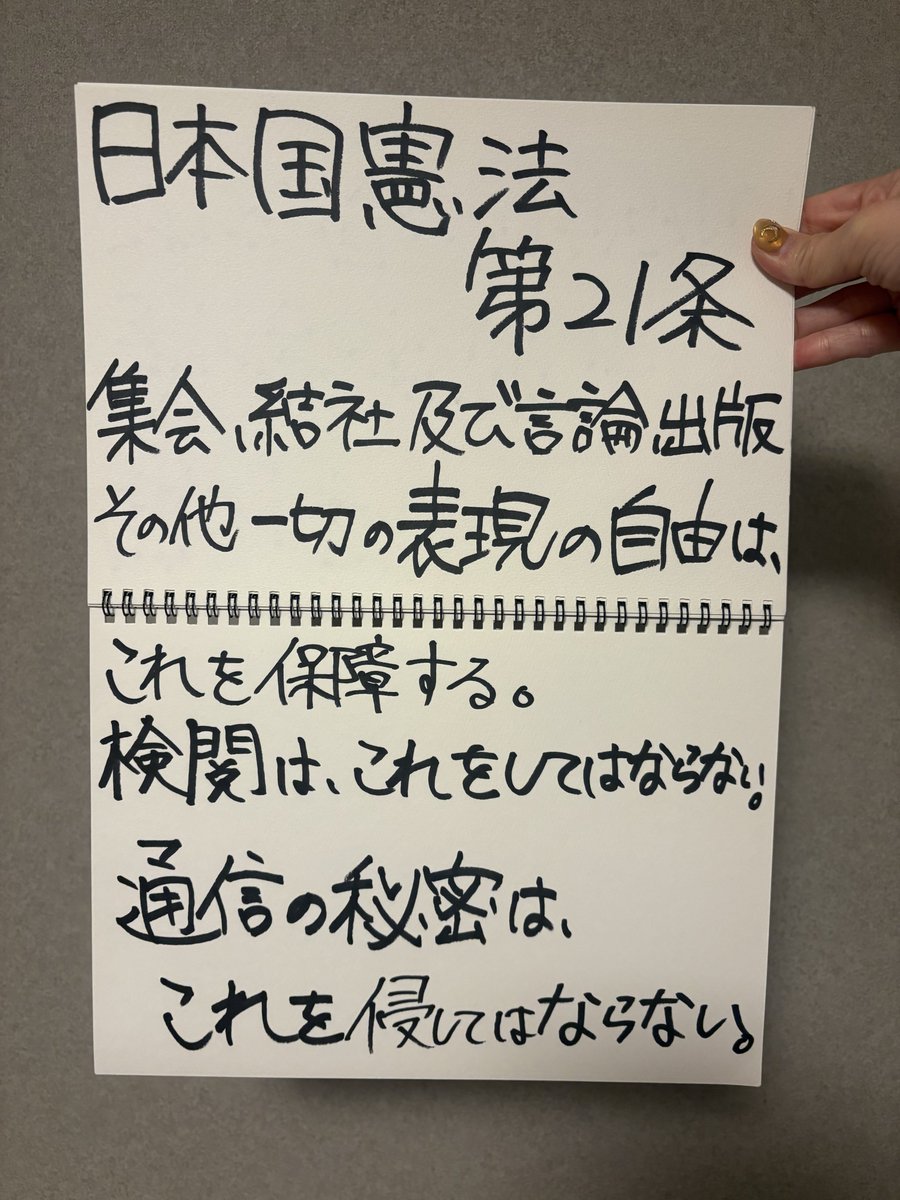 日本国憲法
第21条
集会、結社及び言論、出版
その他一切の表現の自由は、
これを保障する。
検閲は、これをしてはならない。
通信の秘密は、
これを侵してはならない。